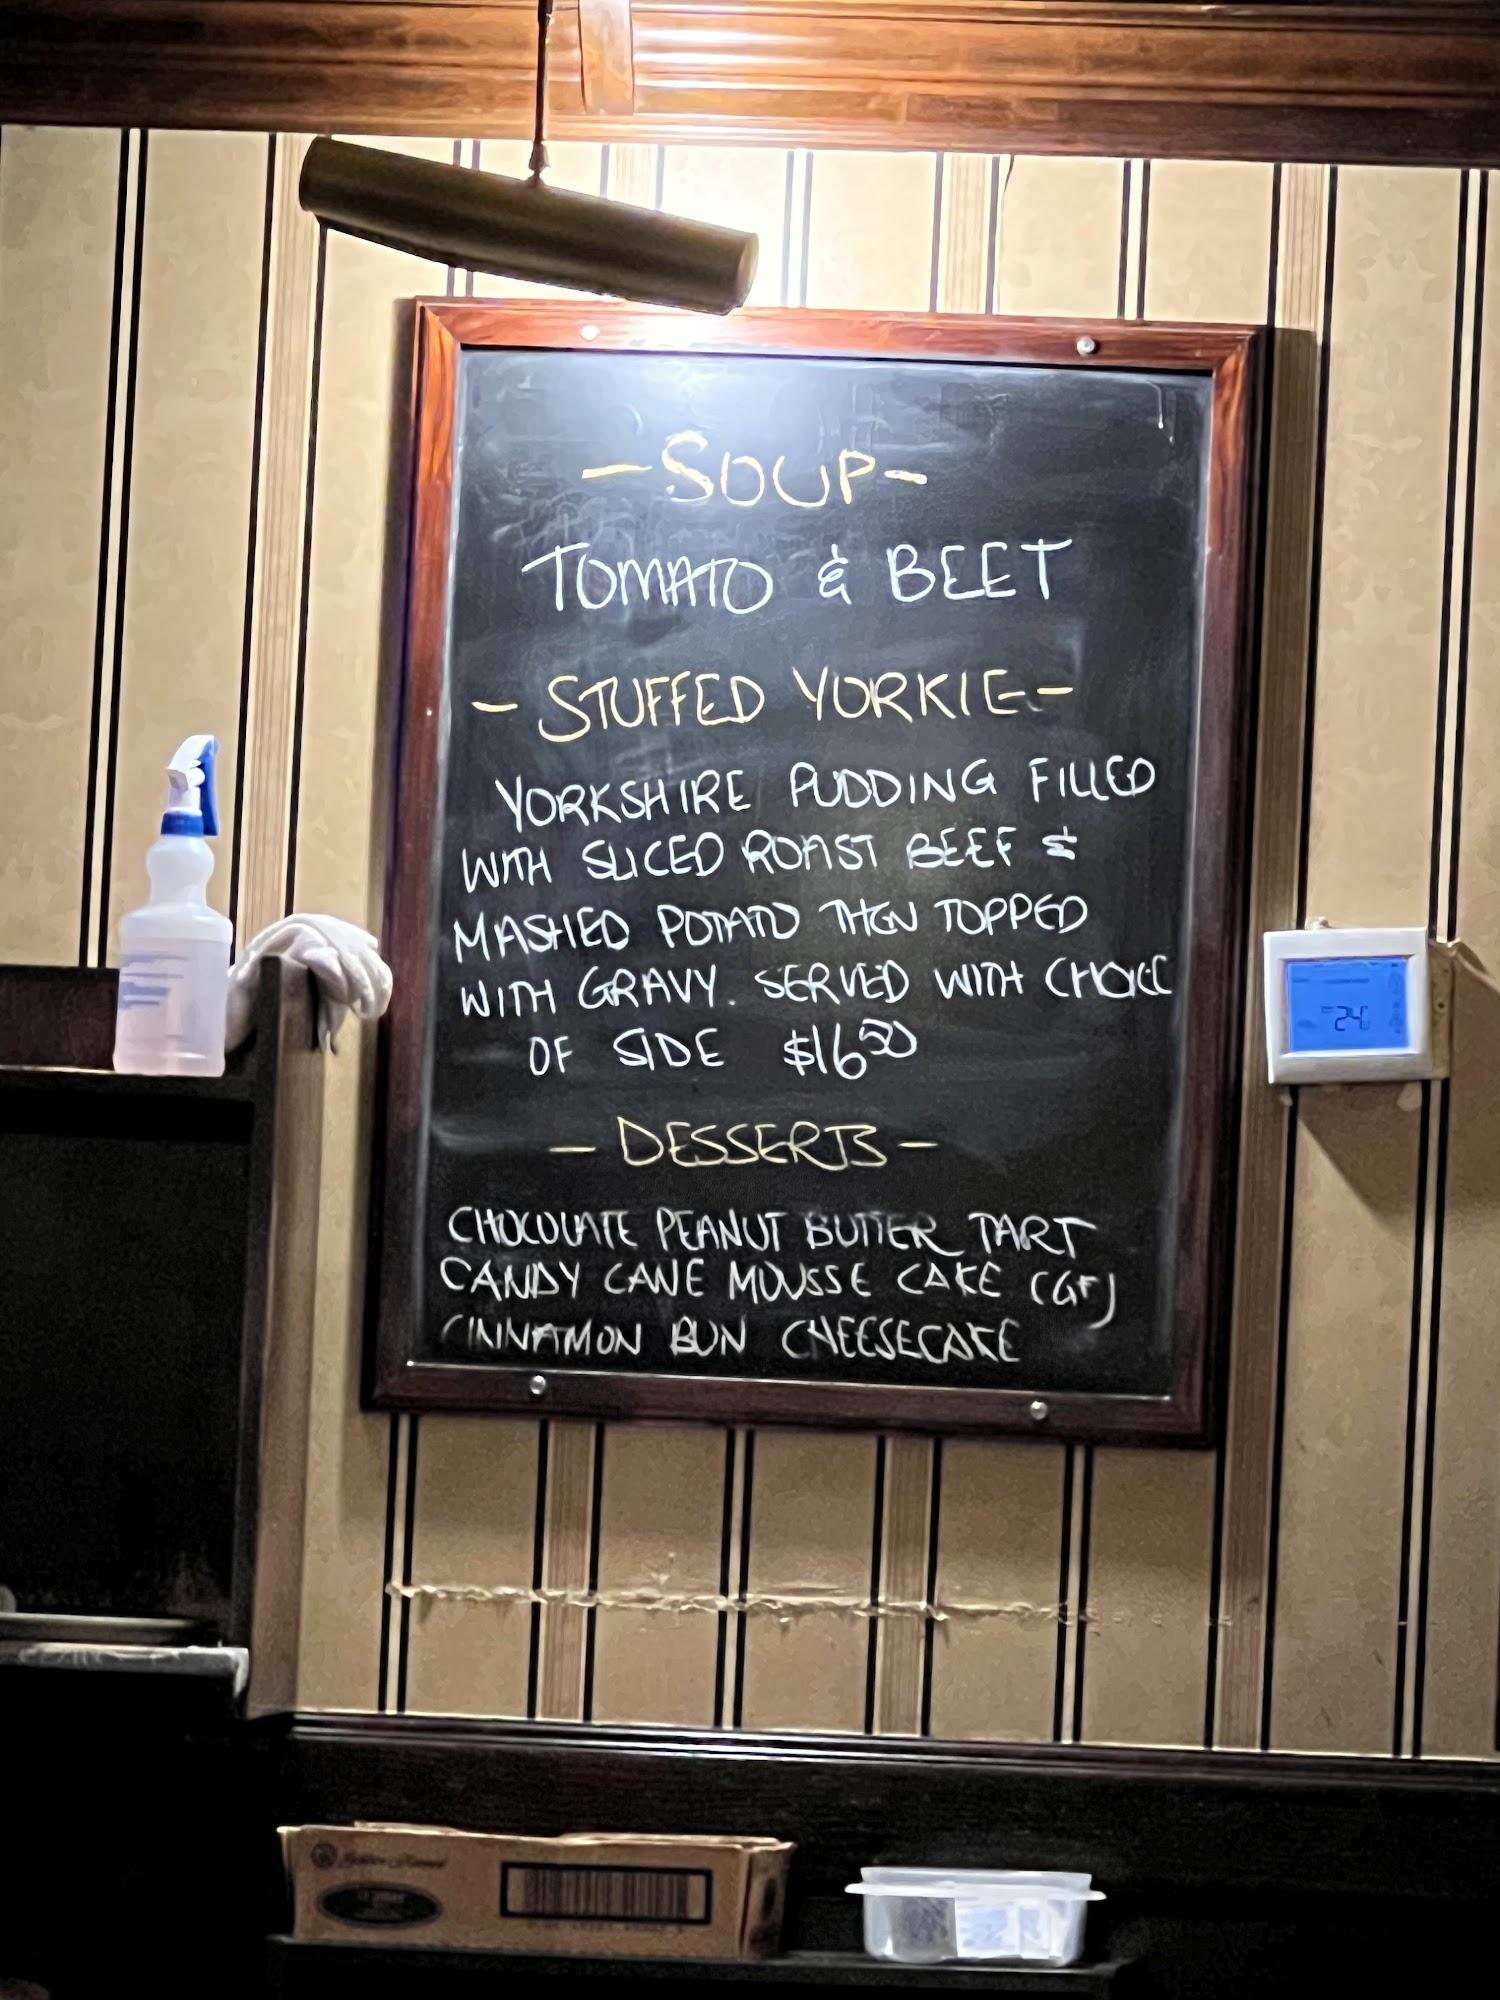 -SOUP-
TOMATO & BEET
- STUFFED YORKIE -
YORKSHIRE PUDDING FILLED
WITH SLICED ROAST BEEF &
MASHED POTATO THEN TOPPED
WITH GRAVY. SERVED WITH CHOICE
OF SIDE $16.50
- DESSERTS -
CHOCOLATE PEANUT BUTTER TART
CANDY CANE MOUSSE CAKE (GF)
CINNAMON BUN CHEESECAKE
24